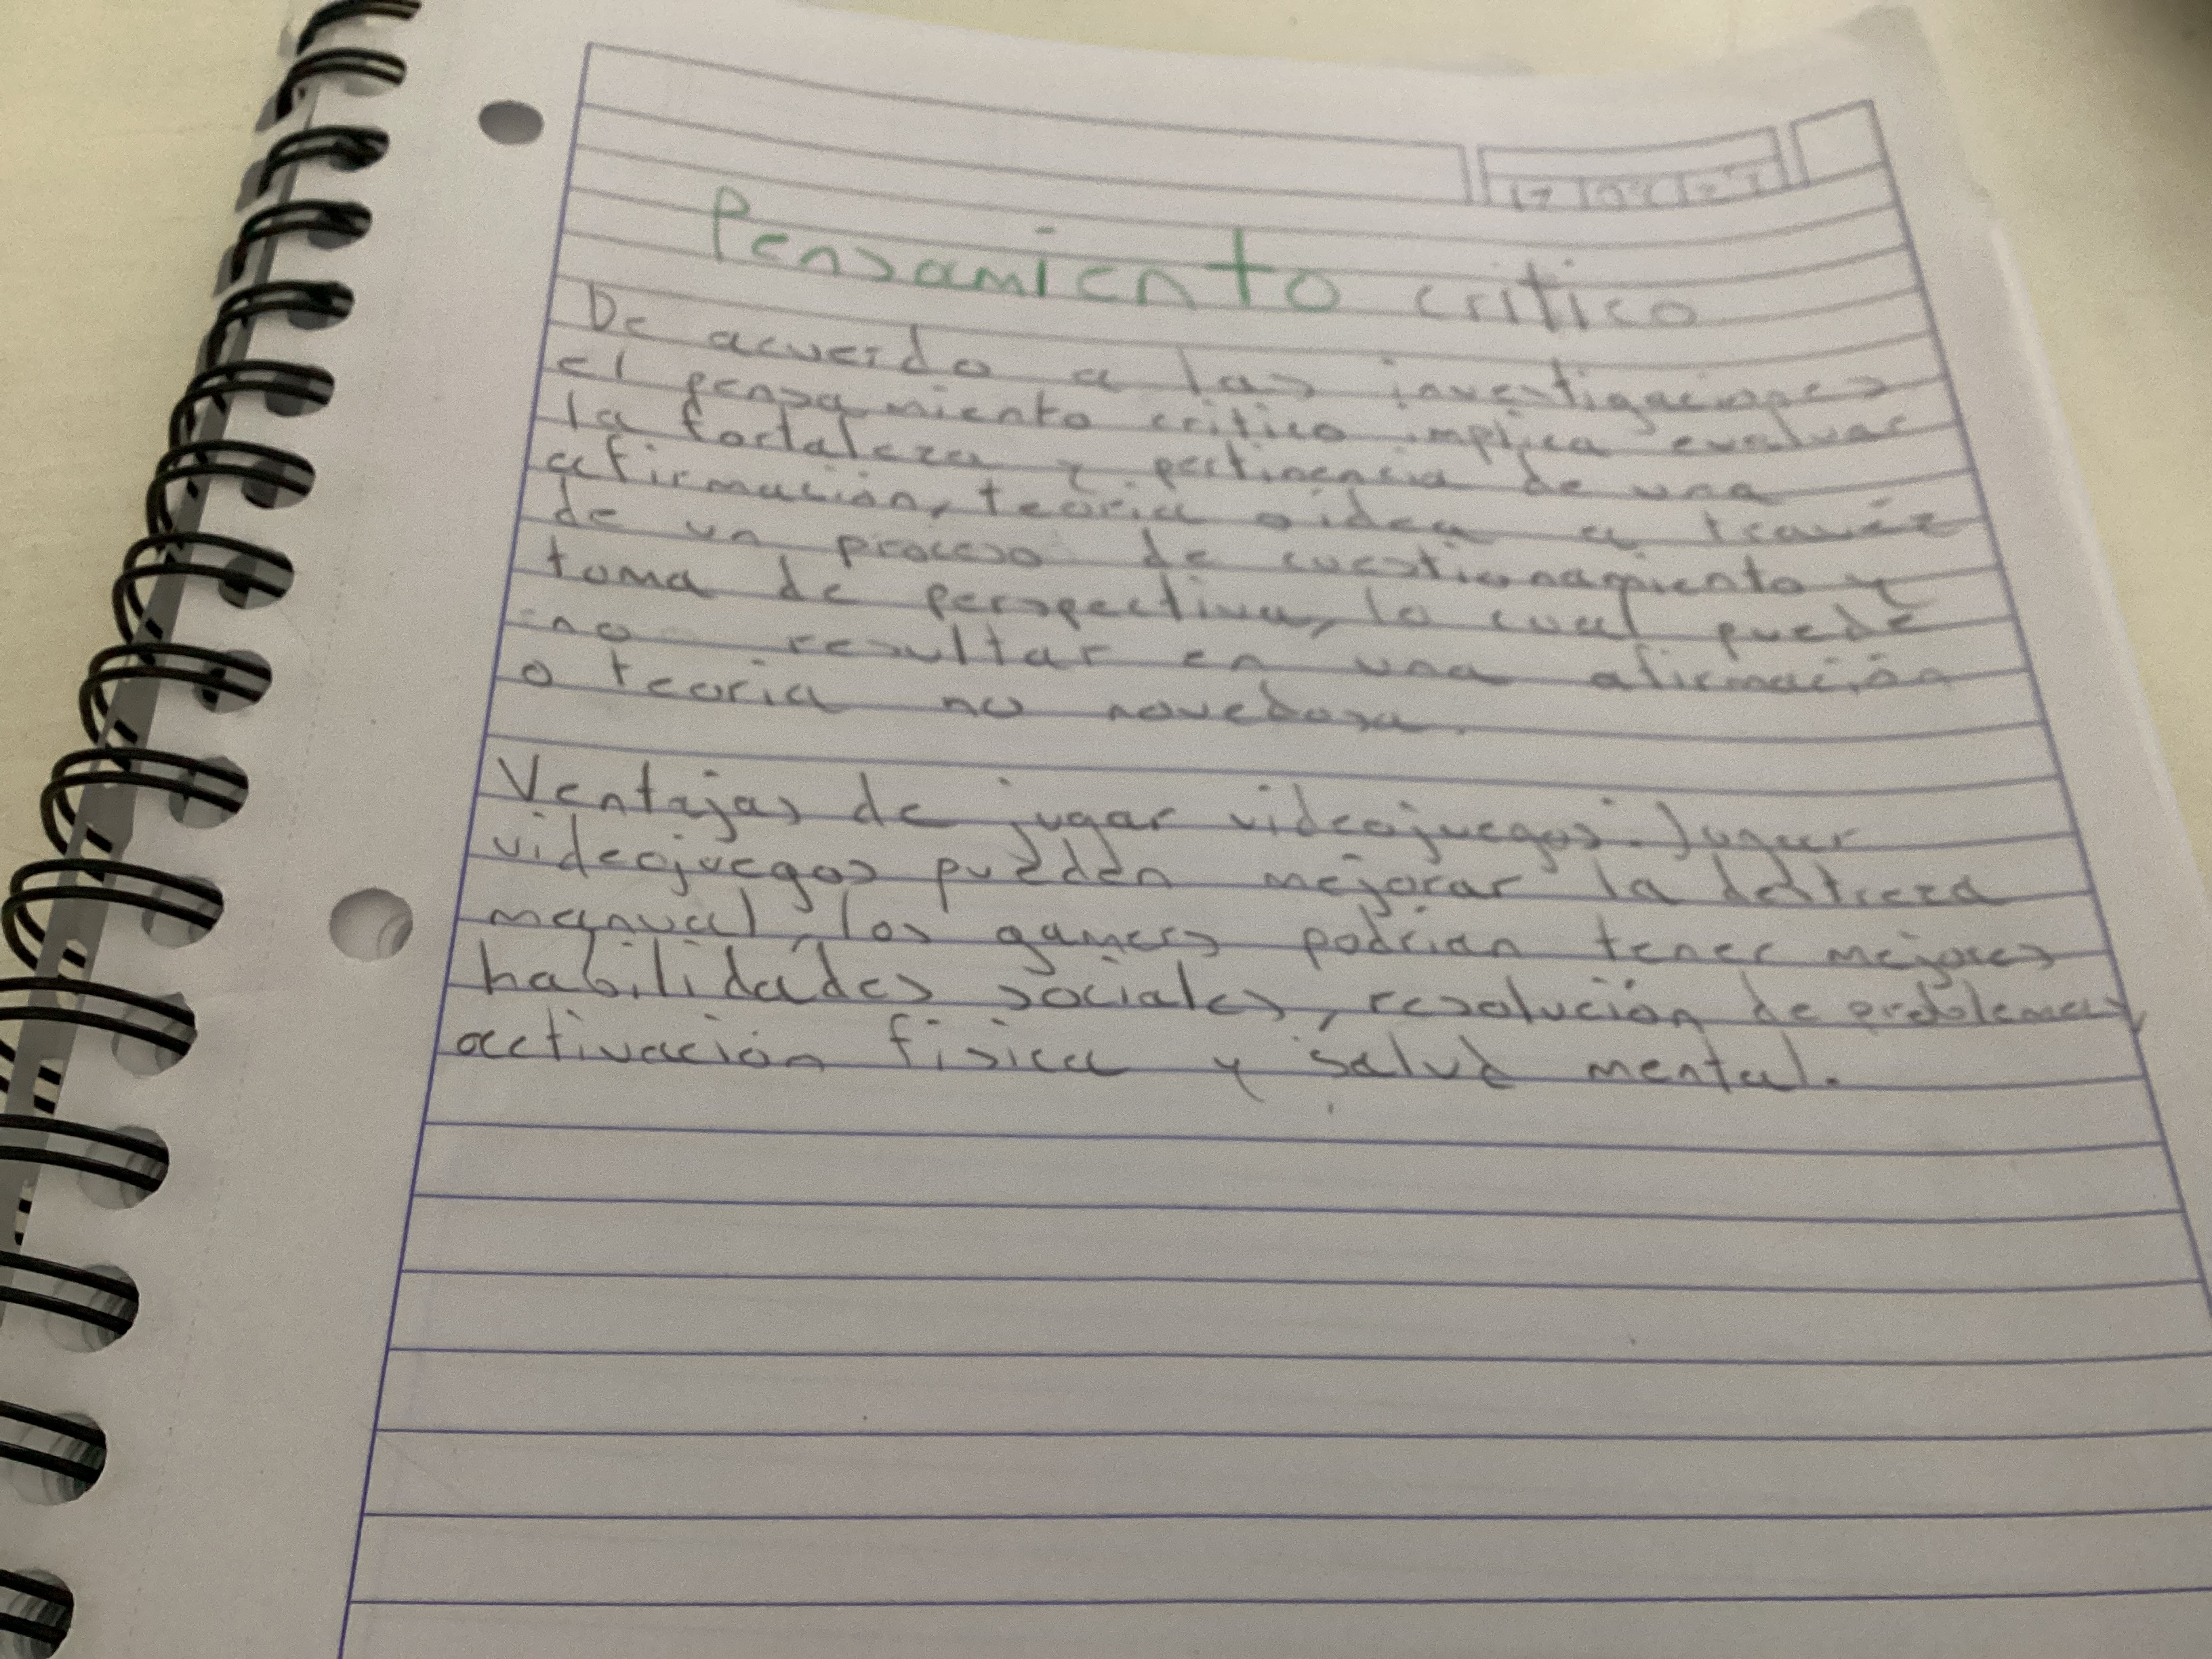 Pensamiento critico
De acuerdo a las investigaciones
el pensamiento critico implica evaluar
la fortaleza y pertinencia de una
afirmación, teoria o idea a travéz
de un proceso de cuestionamiento y
toma de perspectiva, lo cual puede
no resultar en una afirmación
o teoria no novedosa.
Ventajas de jugar videojuegos. Jugar
videojuegos pueden mejorar la destreza
manual, los gamers podrian tener mejores
habilidades sociales, resolución de problemas,
activación fisica y salud mental.